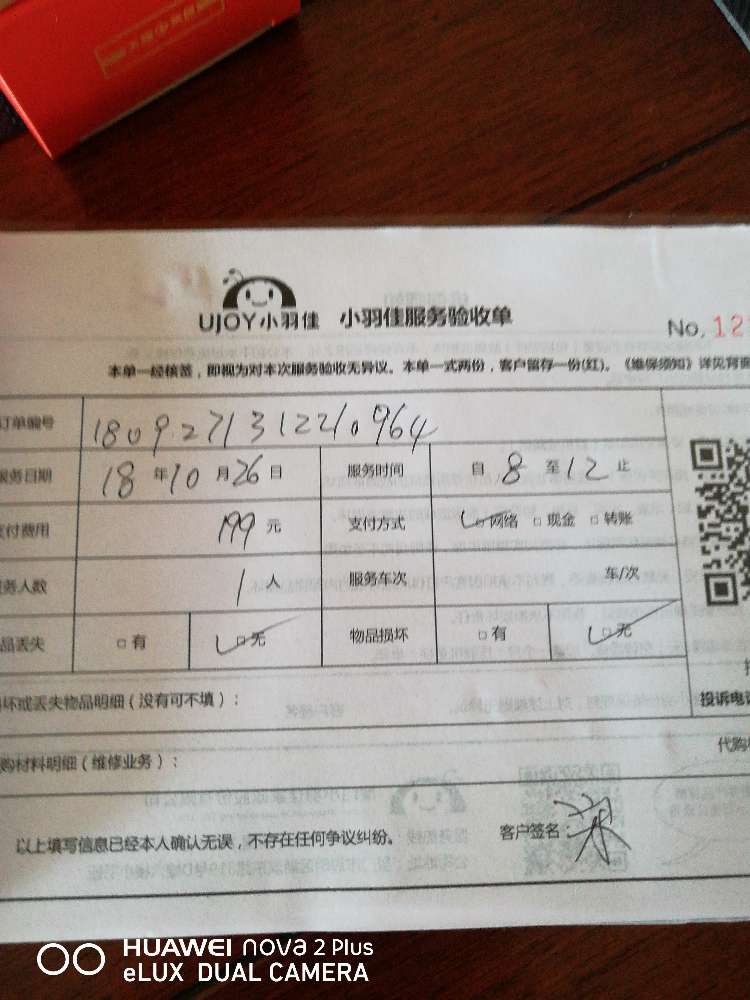 UJOY小羽佳 小羽佳服务验收单
No. 12
本单一经核签，即视为对本次服务验收无异议。本单一式两份，客户留存一份(红)。《维保须知》详见背面
订单编号 1809271312210964
服务日期 18 年 10 月 26 日 服务时间 自 8 至 12 止
支付费用 199 元 支付方式 □网络 □现金 □转账
服务人数 1 人 服务车次 车/次
品丢失 □有 □无 物品损坏 □有 □无
坏或丢失物品明细（没有可不填）： 投诉电话
购材料明细（维修业务）： 代购
以上填写信息已经本人确认无误，不存在任何争议纠纷。 客户签名：梁
HUAWEI nova 2 Plus
eLUX DUAL CAMERA